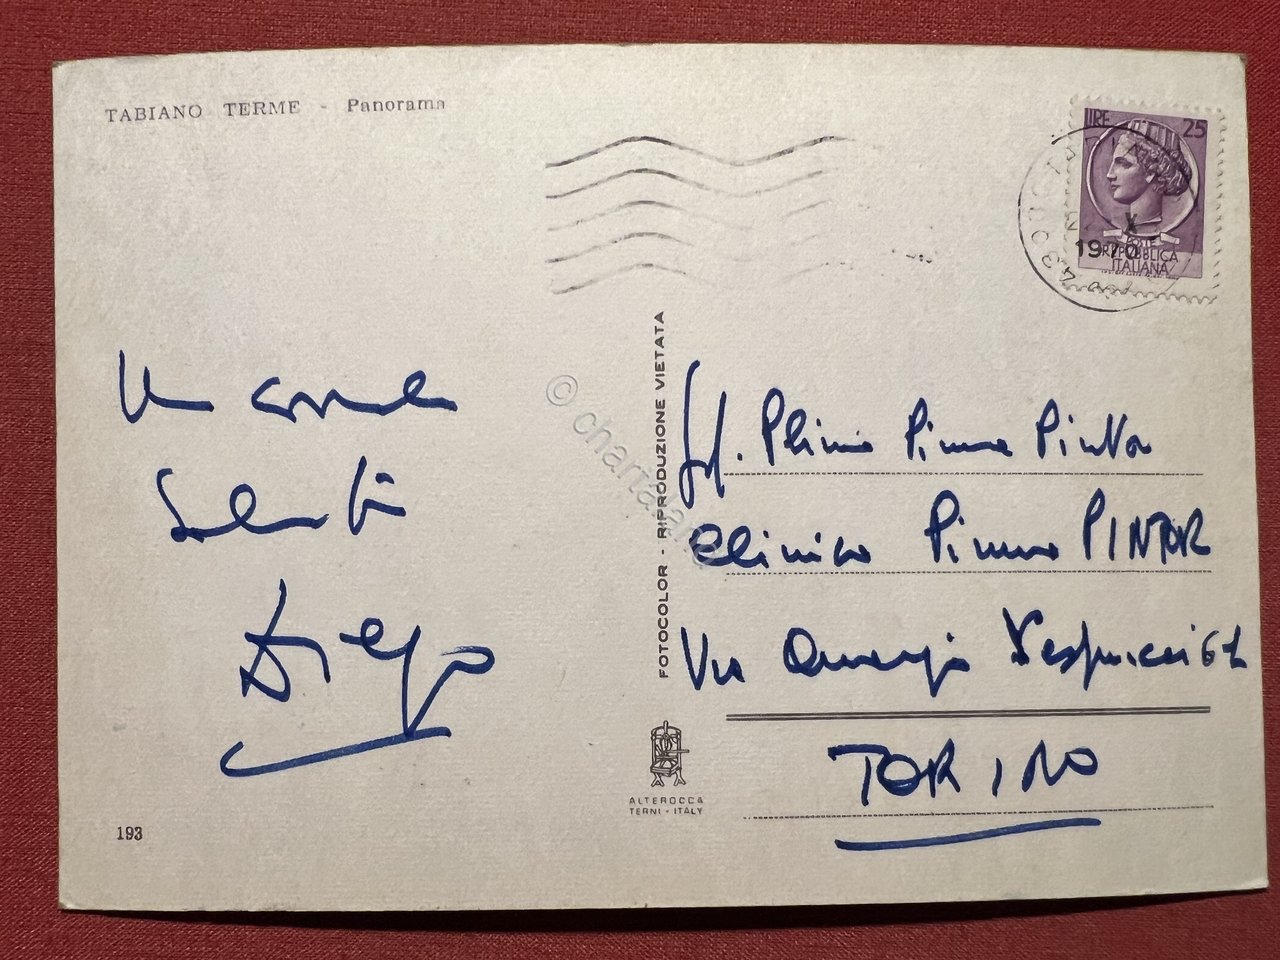 TABIANO TERME - Panorama
LIRE 25
1970
POSTE
REPUBBLICA
ITALIANA
Un
Diego
FOTOCOLOR - RIPRODUZIONE VIETATA
© chartaland
Plinio Pinna Pintor
Clinica Pinna PINTOR
Via Amerigo Vespucci 61
TORINO
ALTEROCCA
TERNI - ITALY
193